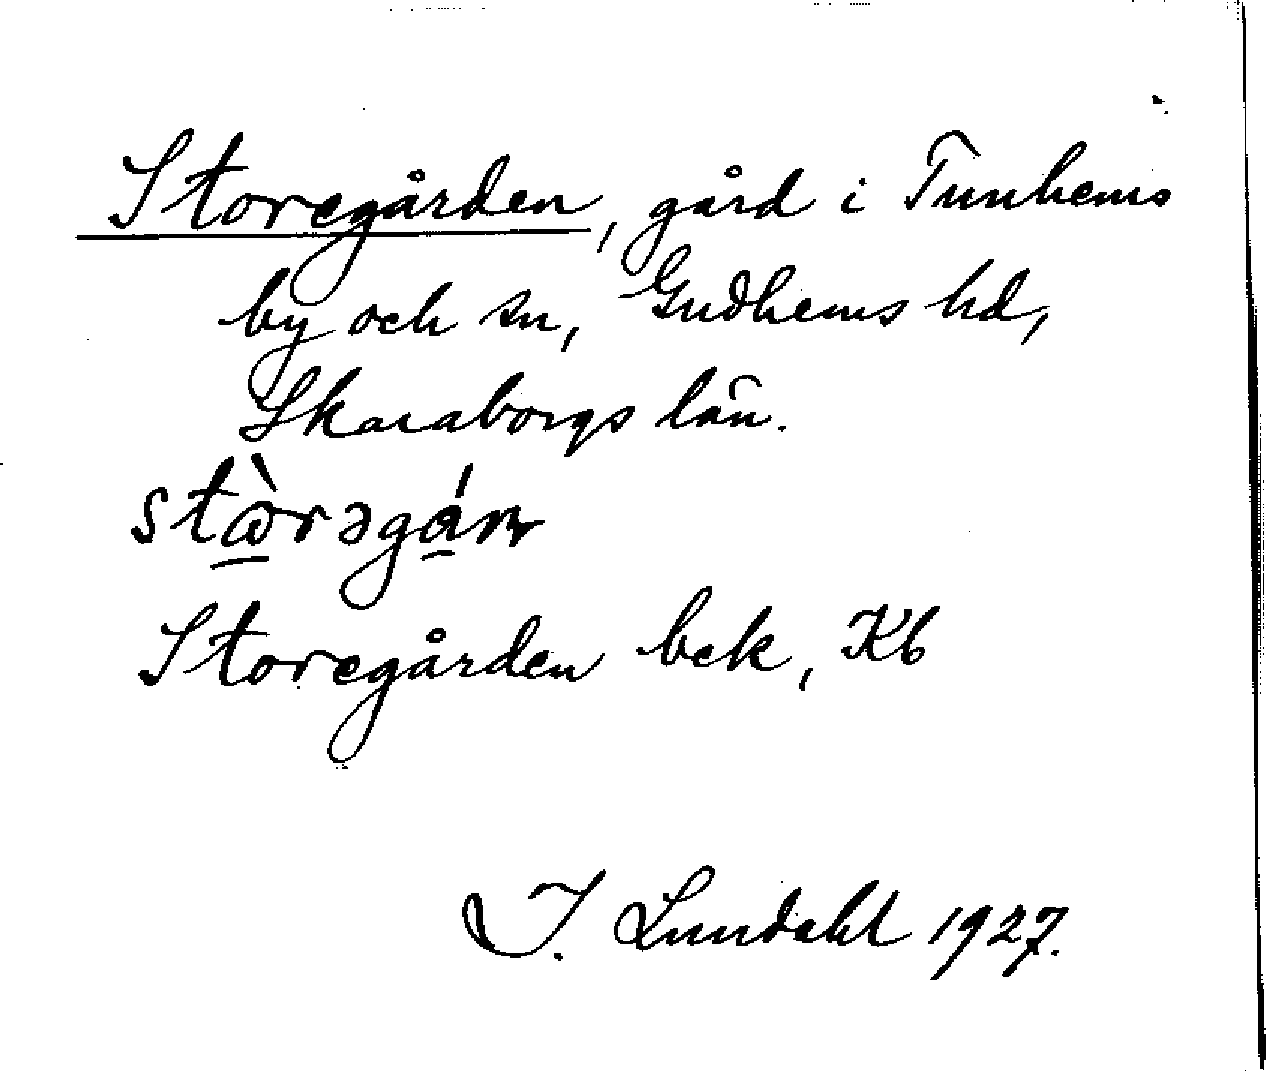 Storegården, gård i Tunhems
by och sn, Gudhems hd,
Skaraborgs län.
Storegården bek, Kb
I. Lundahl 1927.